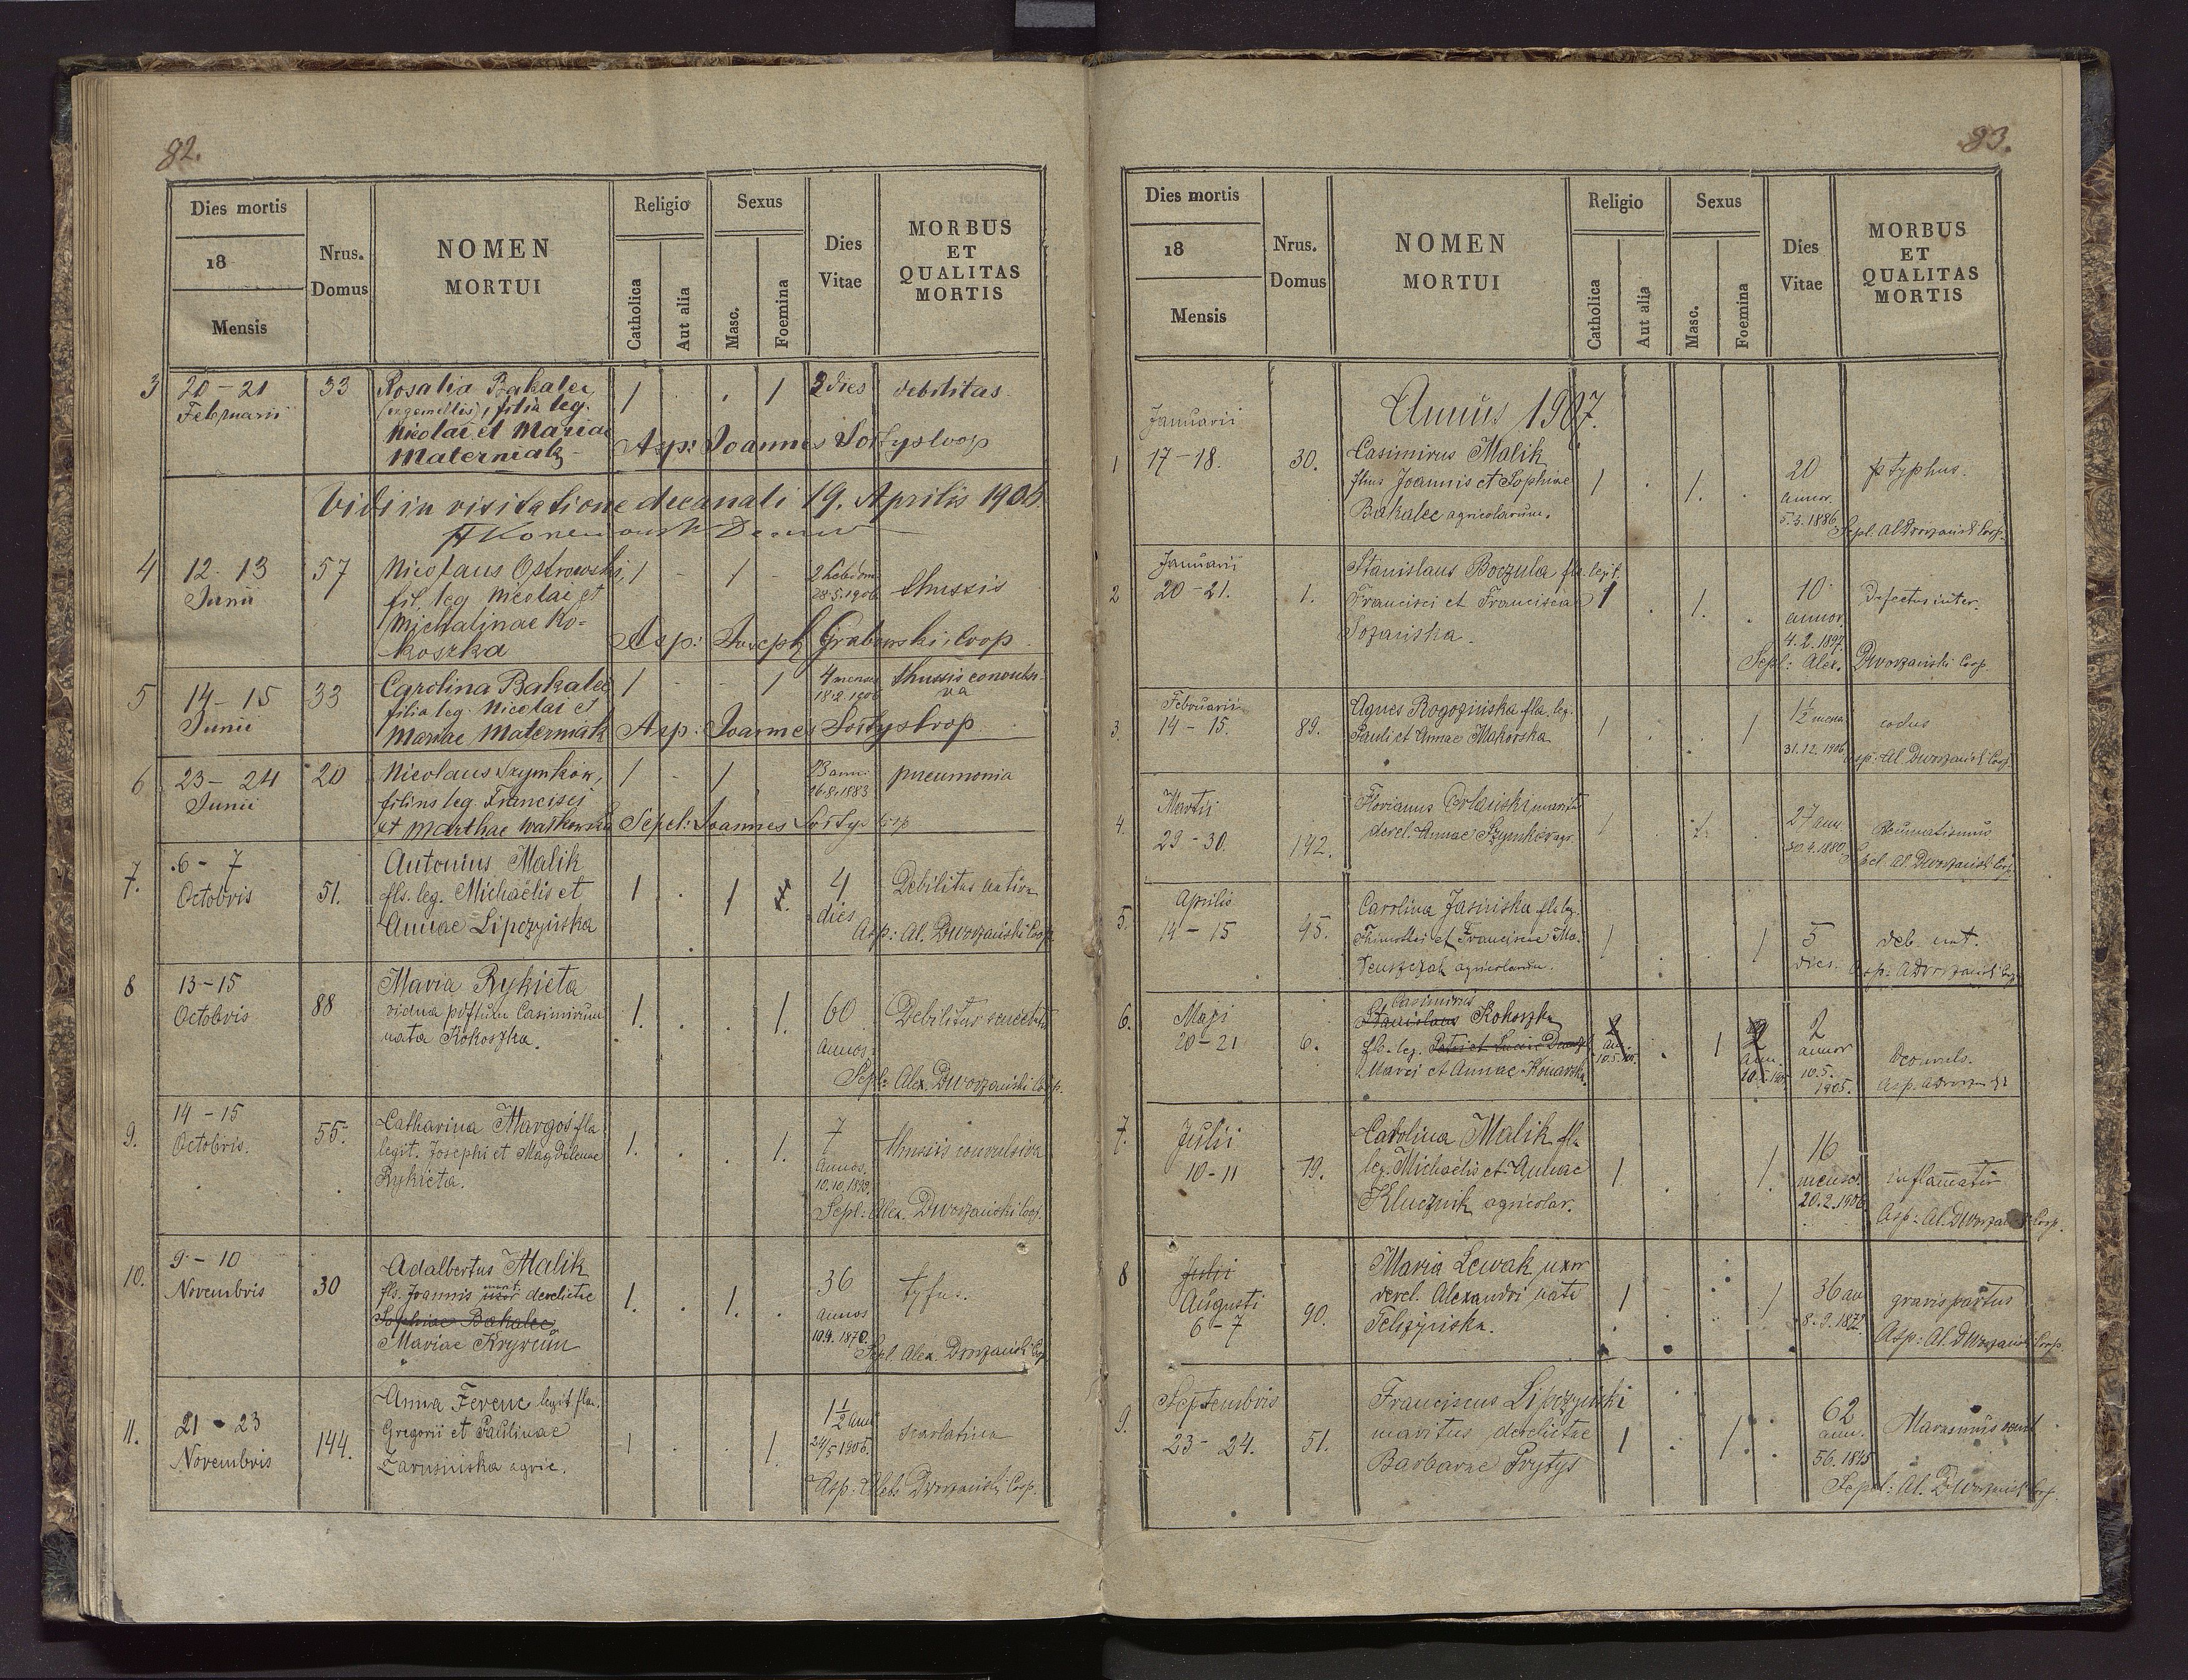 82.
Dies mortis
18
Mensis
Nrus.
Domus
NOMEN
MORTUI
Religio
Catholica
Aut alia
Sexus
Masc.
Foemina
Dies
Vitae
MORBUS
ET
QUALITAS
MORTIS
3 20 - 21 33 Rosalia Bakalec 1 . . 1 2 dies debilitas
Februarii (ex gemellis), filia leg.
Nicolai et Mariae
Materniak Asp: Joannes Sołtys coop
Vidi in visitatione decanali 19. Aprilis 1906.
4 12. 13 57 Nicolaus Ostrowski, 1 - 1 - 2 hebdom thussis
Junii fil. leg. Nicolai et 28.5.1906
Michalinae Ko-
koszka Asp: Joseph Grabowski Coop
5 14 - 15 33 Carolina Bakalec 1 - - 1 4 menses thussis convulsi-
va
Junii filia leg. Nicolai et 18.2.1906
Mariae Materniak Asp: Joannes Sołtys coop
6 23 - 24 20 Nicolaus Szymków, 1 - 1 23 anni pneumonia
Junii filius leg. Francisci 16.8.1883
et Marthae Waśkowska Sepel: Joannes Sołtys coop
7. 6 - 7 51. Antonius Malik 1 . 1 4 Debilitas nativa
Octobris fls. leg. Michaëlis et dies
Annae Lipczyńska Asp: Al. Dworzański Coop
8 13 - 15 88 Maria Rykieta 1. . . 1. 60 Debilitas senectutis
Octobris vidua post Casimirum annos
nata Kokoszka. Sepl: Alex. Dworzański Coop.
9. 14 - 15 55. Catharina Margos fla 1. . . 1. 7 thussis convulsiva
Octobris. legit. Josephi et Magdalenae annos.
Rykieta. 10.10.1899.
Sepl: Alex. Dworzański Coop.
10. 9 - 10 30 Adalbertus Malik 1. . 1. . 36 tyfus.
Novembris fls. Joannis derelictae annos
Sophiae Bakalec 10.4.1870.
Mariae Krywun Sepl. Alex. Dworzański Coop
11. 21 - 23 144. Anna Ferenc legit. fla. 1 . . 1. 1½ ann scarlatina
Novembris Gregorii et Paulinae 24/5 1905.
Zarusińska agric.
Asp: Dworzański Coop.
83.
Dies mortis
18
Mensis
Nrus.
Domus
NOMEN
MORTUI
Religio
Catholica
Aut alia
Sexus
Masc.
Foemina
Dies
Vitae
MORBUS
ET
QUALITAS
MORTIS
Annus 1907.
Januarii
1 17 - 18. 30. Casimirus Malik 1 . 1. . 20 typhus.
filius Joannis et Sophiae annor.
Bakalec agricolarum. 5.3.1886
Sepl. Al Dworzański Coop.
Januarii Stanislaus Boczula fls. legit.
2 20 - 21. 1. Francisci et Franciscae 1 . 1. . 10 Defectus inter.
Sozańska. annor.
4.2.1897.
Sepl: Alex. Dworzański Coop
Februarii
3. 14 - 15. 89. Agnes Rogozińska fla. leg. 1 . . 1 1½ mens
Pauli et Annae Makorska 31.12.1906
Asp: Al. Dworzański Coop.
4. Martii Florianus marit. 1 . 1. . 27 ann Reumatismus
29 - 30. 142. derel. Annae Szymków agr. 30.4.1880
Sepel. Al Dworzański Coop
Aprilis
5. 14 - 15 45. Carolina Jasińska fla leg. 1 . . 1 5 deb. nat.
Thimothei et Franciscae Ma- dies.
agricolarum. Asp: A Dworzański Coop
6. Maji Casimirus
Stanislaus Kokoszka
20 - 21 6. fls. leg. . 1 2 Convuls.
Marci et Annae Konarska annor
10.5.
1905. Asp. A Dworzański
7. Julii Carolina Malik fla 16
10 - 11 79. leg. Michaëlis et Annae 1 . . 1. mens. inflamatio
Klucznik agricolar. 20.2.1906
Asp: Al. Dworzański Coop.
8 Julii Maria Lewak uxor
Augusti 90. derel. Alexandri nata 1 . . 1 36 an gravis partus
6 - 7 Teliżyńska. 8.9.1872.
Asp: Al. Dworzański Coop.
Septembris Franciscus Lipczyński 62
9. 23 - 24. 51. maritus derelictae 1 . 1 . ann. Marasmus senil
Barbarae Prytys 5 6. 1845
Sepel: Al. Dworzański Coop.